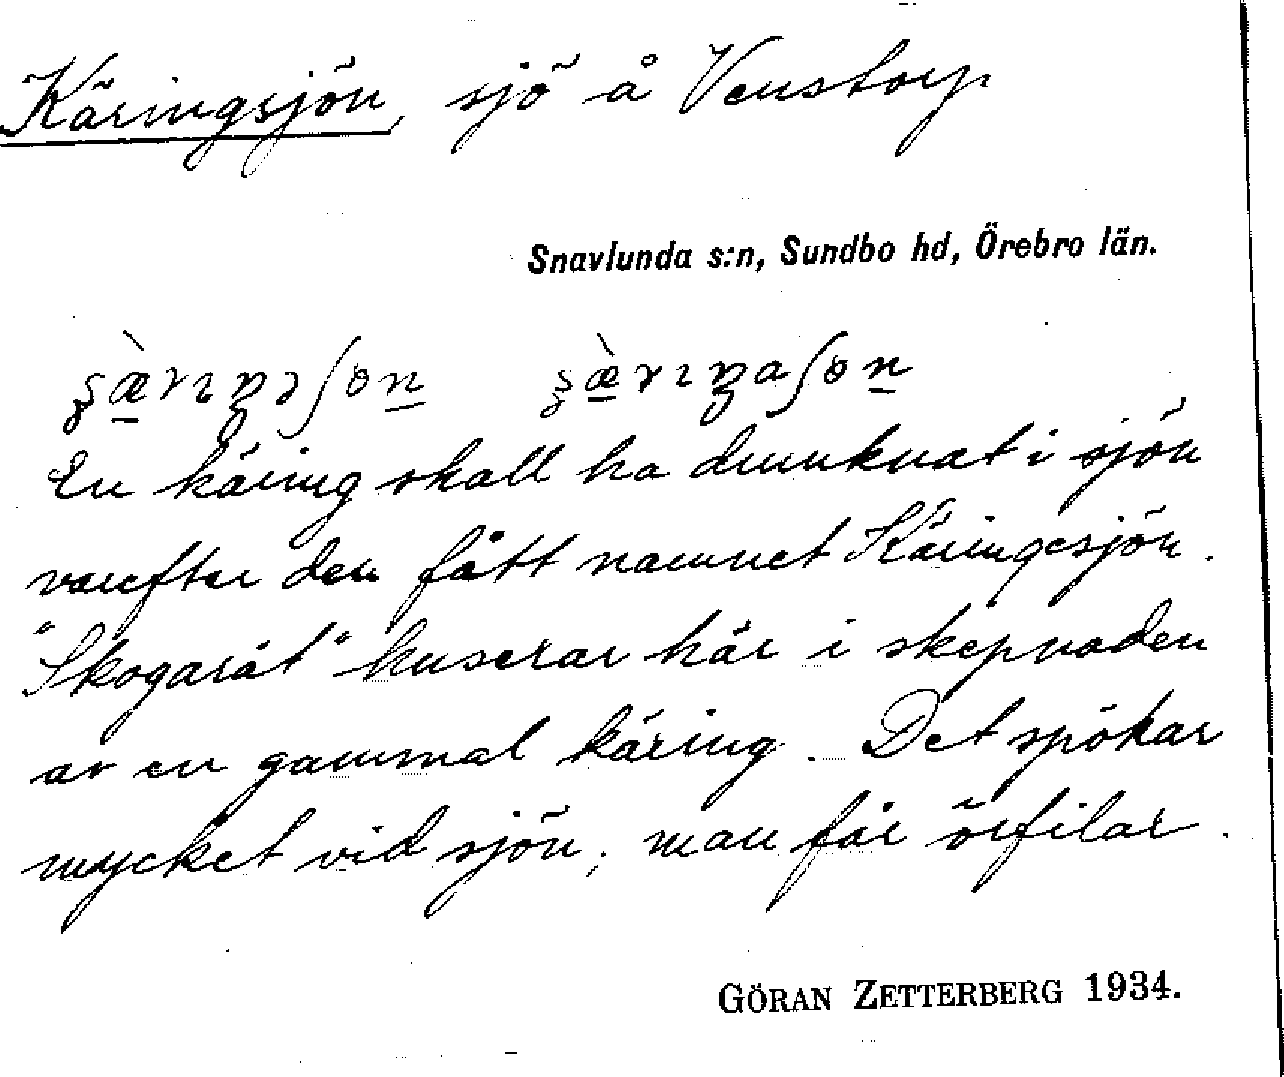 Käringsjön, sjö å Venstorp
Snavlunda s:n, Sundbo hd, Örebro län.
En käring skall ha drunknat i sjön
varefter den fått namnet Käringesjön.
"Skogaråt" huserar här i skepnaden
av en gammal käring. Det spökar
mycket vid sjön; man får örfilar.
GÖRAN ZETTERBERG 1934.